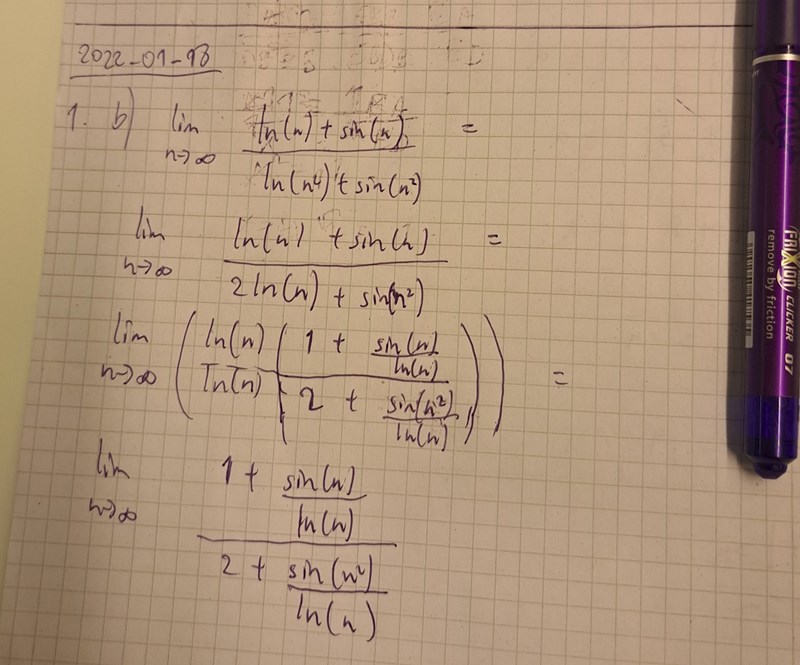 2022-01-13
1. b) lim n→∞ (ln(n) + sin(n)) / (ln(n⁴) + sin(n²)) =
lim n→∞ (ln(n) + sin(n)) / (2 ln(n) + sin(n²)) =
lim n→∞ ( ln(n) / ln(n) ( (1 + sin(n)/ln(n)) / (2 + sin(n²)/ln(n)) ) ) =
lim n→∞ (1 + sin(n)/ln(n)) / (2 + sin(n²)/ln(n))
FRIXION CLICKER 07
remove by friction